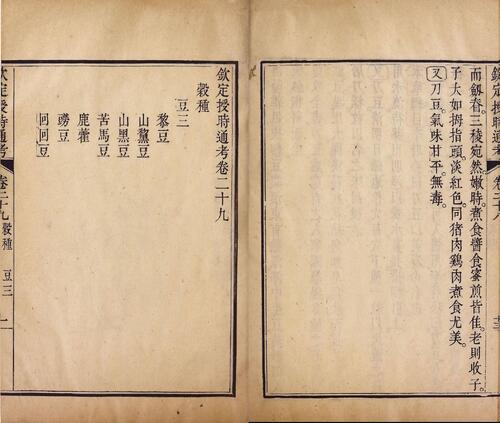 欽定授時通考 卷二十八
而劔脊三稜宛然嫩時煮食醬食蜜煎皆佳老則收子
子大如拇指頭淡紅色同猪肉鷄肉煮食尤美
又刀豆氣味甘平無毒
欽定授時通考卷二十九
穀種
豆三
黎豆
山藜豆
山黑豆
苦馬豆
鹿藿
豆
回回豆
欽定授時通考 卷二十九 穀種 豆三 一